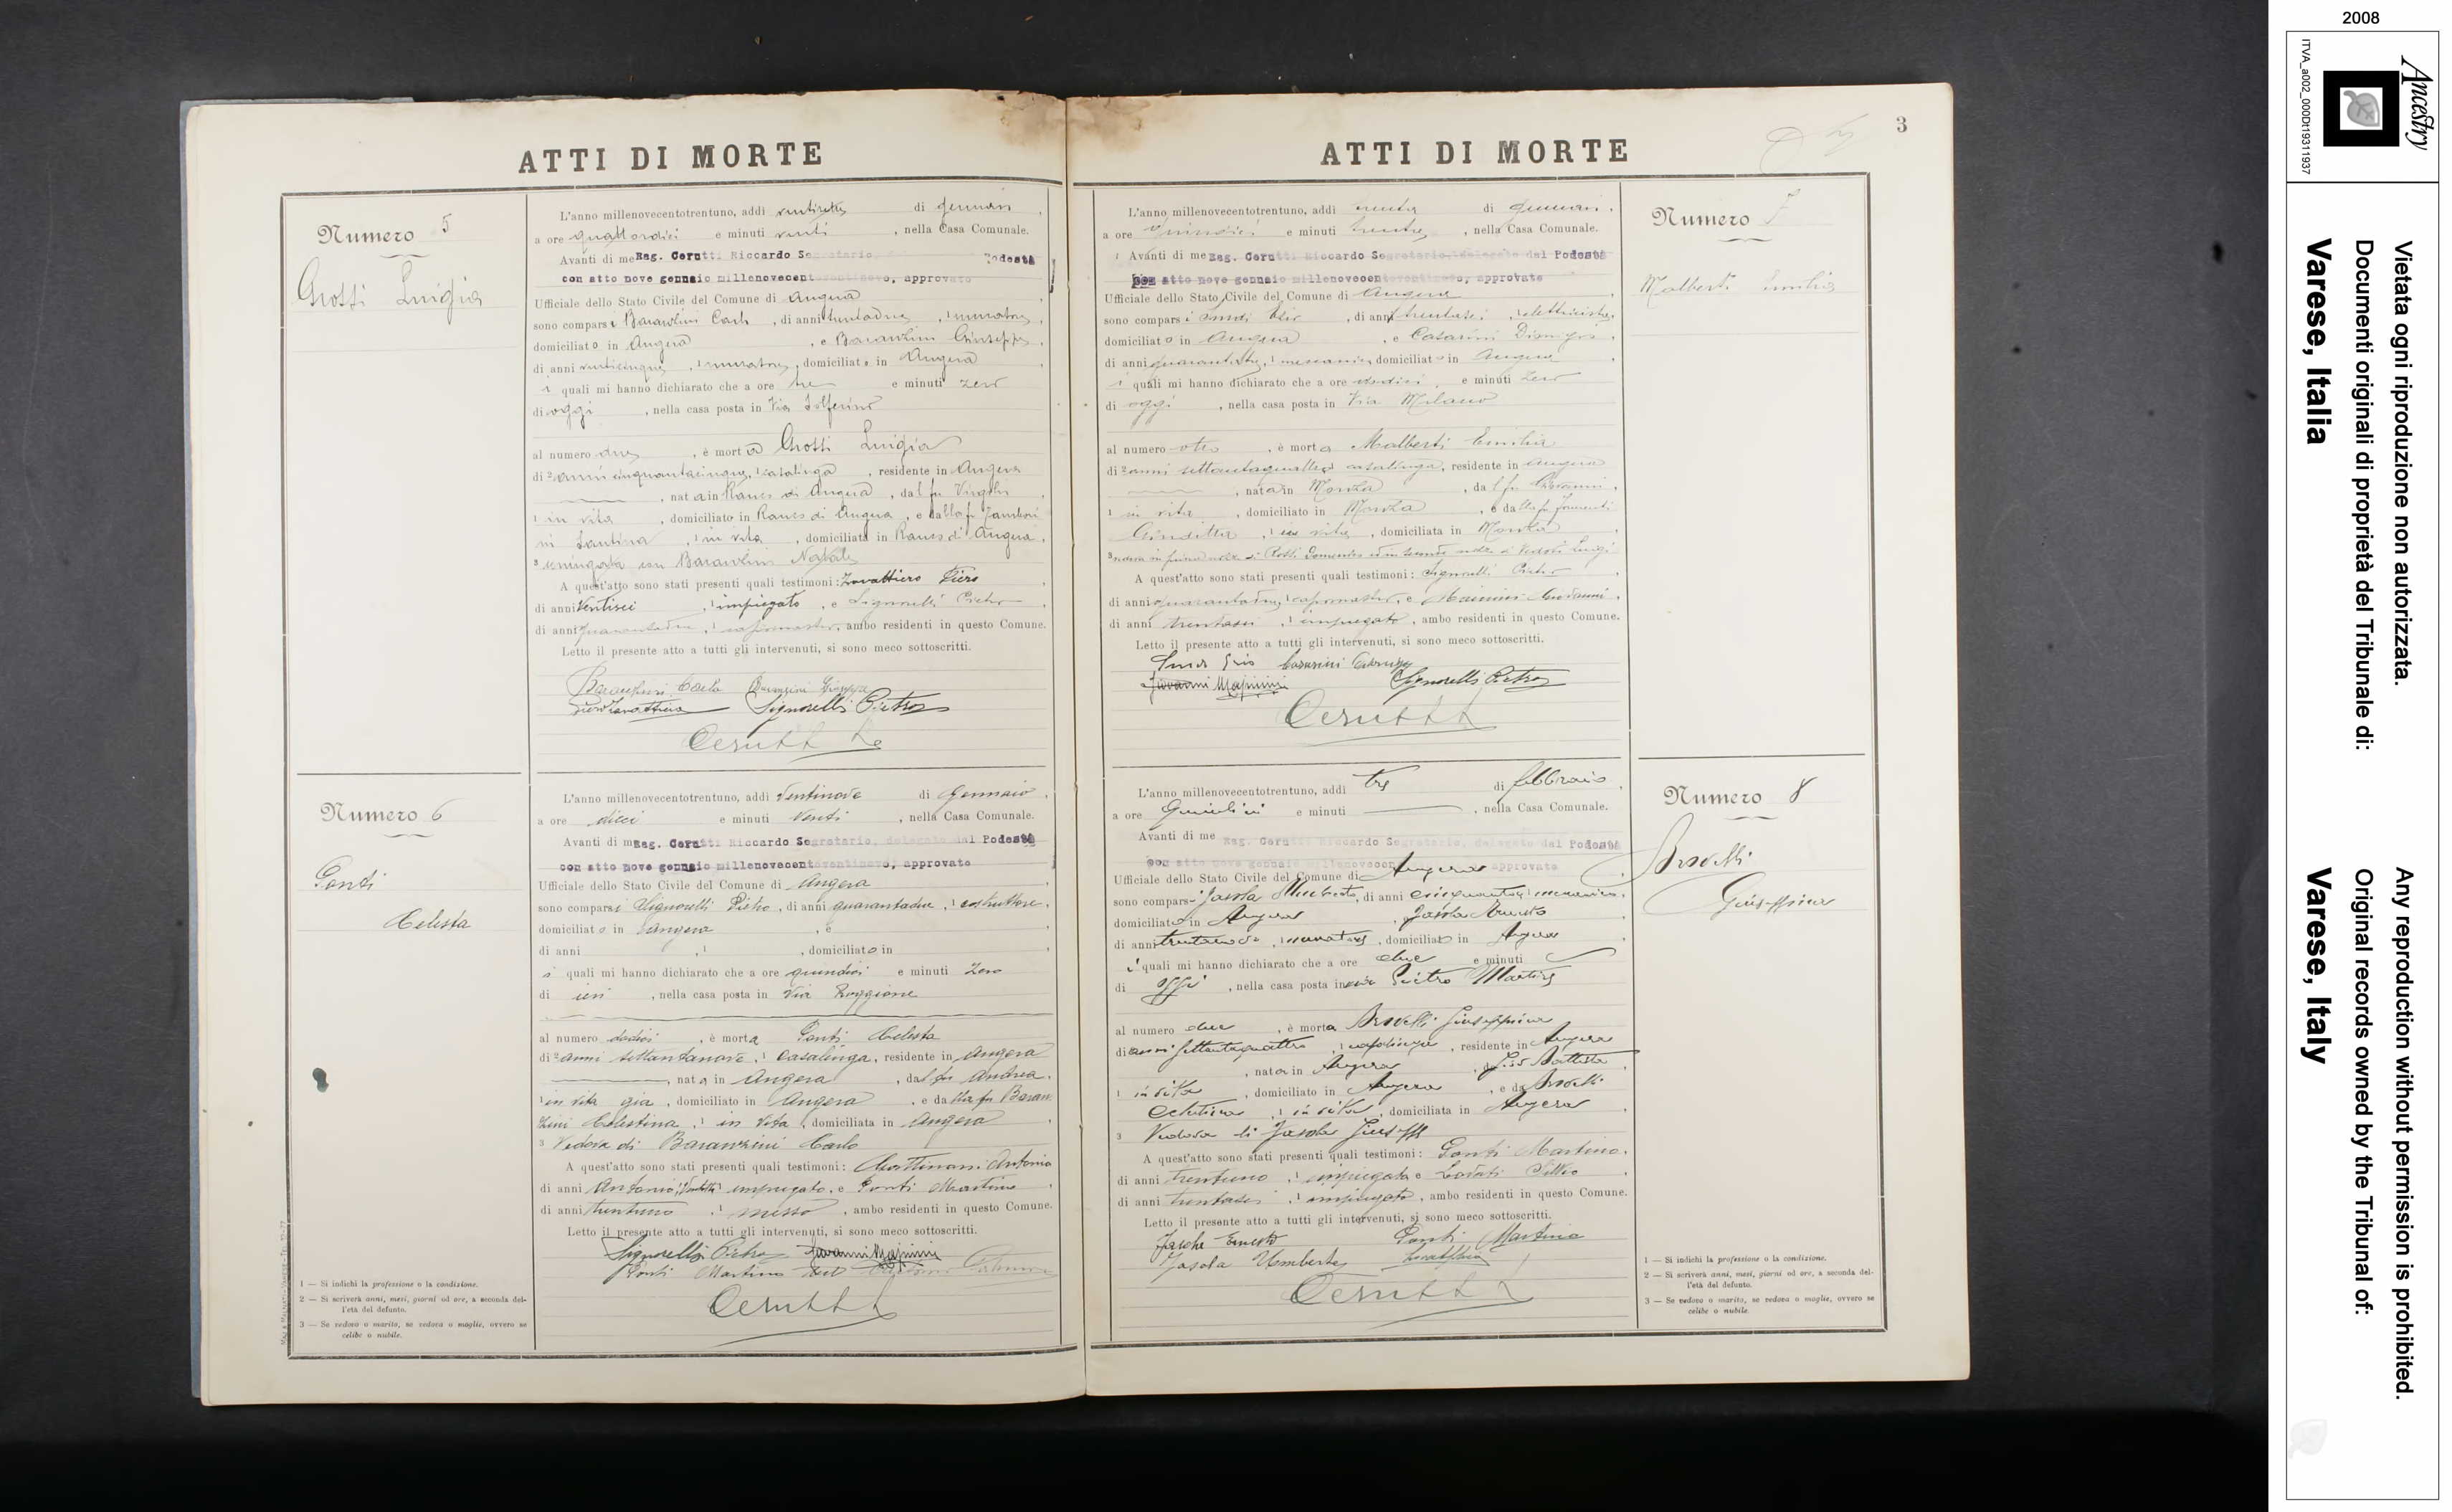 ATTI DI MORTE
Numero 5
Grossi Luigia
L'anno millenovecentotrentuno, addì ventisette di gennaio,
a ore quattordici e minuti venti, nella Casa Comunale.
Avanti di me Rag. Cerutti Riccardo Segretario, Podestà
con atto nove gennaio millenovecentoventinovo, approvato
Ufficiale dello Stato Civile del Comune di Angera
sono comparsi Baranzini Carlo, di anni trentadue, muratore,
domiciliato in Angera, e Baranzini Giuseppe,
di anni venticinque, muratore, domiciliato in Angera
i quali mi hanno dichiarato che a ore tre e minuti zero
di oggi, nella casa posta in Via Solferino
al numero due, è morta Grossi Luigia
di anni cinquantacinque, casalinga, residente in Angera
, nata in Ranco di Angera, dal fu
in vita, domiciliato in Ranco di Angera, e dalla fu
Santina, in vita, domiciliata in Ranco di Angera,
coniugata con Baranzini Natale
A quest'atto sono stati presenti quali testimoni: Zavattiero Piero
di anni ventisei, impiegato, e Signorelli Pietro
di anni quarantadue, capomastro, ambo residenti in questo Comune.
Letto il presente atto a tutti gli intervenuti, si sono meco sottoscritti.
Baranzini Carlo Baranzini Giuseppe
Piero Zavattiero Signorelli Pietro
Cerutti R.
Numero 6
Ponti
Celesta
L'anno millenovecentotrentuno, addì ventinove di Gennaio,
a ore dieci e minuti venti, nella Casa Comunale.
Avanti di me Rag. Cerutti Riccardo Segretario, delegato dal Podestà
con atto nove gennaio millenovecentoventinovo, approvato
Ufficiale dello Stato Civile del Comune di Angera
sono comparsi Signorelli Pietro, di anni quarantadue, 1 costruttore,
domiciliato in Angera, e
di anni , 1 , domiciliato in
i quali mi hanno dichiarato che a ore quindici e minuti zero
di ieri, nella casa posta in Via Roggione
al numero dodici, è morta Ponti Celesta
di 2 anni settantanove, 1 casalinga, residente in Angera
, nata in Angera, dal fu Andrea,
1 in vita già, domiciliato in Angera, e dalla fu Baran
zini Celestina, 1 in vita, domiciliata in Angera
3 Vedova di Baranzini Carlo
A quest'atto sono stati presenti quali testimoni: Antonio
di anni Antonio, impiegato, e Ponti Martino
di anni trentuno, 1 messo, ambo residenti in questo Comune.
Letto il presente atto a tutti gli intervenuti, si sono meco sottoscritti.
Signorelli Pietro Giovanni
Ponti Martino
Cerutti
1 — Si indichi la professione o la condizione.
2 — Si scriverà anni, mesi, giorni od ore, a seconda del-
l'età del defunto.
3 — Se vedovo o marito, se vedova o moglie, ovvero se
celibe o nubile.
3
ATTI DI MORTE
Numero 7
Malberti Emilia
L'anno millenovecentotrentuno, addì trenta di gennaio,
a ore quindici e minuti trenta, nella Casa Comunale.
Avanti di me Rag. Cerutti Riccardo Segretario, delegato dal Podestà
con atto nove gennaio millenovecentoventinovo, approvato
Ufficiale dello Stato Civile del Comune di Angera
sono comparsi, di anni trentasei, elettricista,
domiciliato in Angera, e Casarini Dionigi,
di anni, 1 meccanico, domiciliato in Angera
i quali mi hanno dichiarato che a ore dodici, e minuti zero
di oggi, nella casa posta in Via Milano
al numero otto, è morta Malberti Emilia
di 2 anni settantaquattro, casalinga, residente in Angera
, nata in Monza, dal fu Giovanni,
1 in vita, domiciliato in Monza, e dalla fu
Giuditta, 1 in vita, domiciliata in Monza
A quest'atto sono stati presenti quali testimoni: Signorelli Pietro
di anni quarantadue, 1 capomastro, e Giovanni,
di anni trentasei, 1 impiegato, ambo residenti in questo Comune.
Letto il presente atto a tutti gli intervenuti, si sono meco sottoscritti.
Giovanni Signorelli Pietro
Cerutti
Numero 8
Brovelli
Giuseppina
L'anno millenovecentotrentuno, addì tre di febbraio,
a ore quindici e minuti, nella Casa Comunale.
Avanti di me Rag. Cerutti Riccardo Segretario, delegato dal Podestà
con atto nove gennaio millenovecentoventinovo, approvato
Ufficiale dello Stato Civile del Comune di Angera
sono comparsi Jasola Umberto, di anni, meccanico,
domiciliato in Angera, Jasola Ernesto
di anni, muratore, domiciliato in Angera
i quali mi hanno dichiarato che a ore due e minuti
di oggi, nella casa posta in via Pietro Martire
al numero due, è morta Brovelli Giuseppina
di anni settantaquattro, 1 casalinga, residente in Angera
, nata in Angera, Battista
1 in vita, domiciliato in Angera, e da Brovelli
, 1 in vita, domiciliata in Angera
3 Vedova di Jasola Giuseppe
A quest'atto sono stati presenti quali testimoni: Ponti Martino,
di anni trentuno, 1 impiegato e Lovati
di anni trentasei, 1 impiegato, ambo residenti in questo Comune.
Letto il presente atto a tutti gli intervenuti, si sono meco sottoscritti.
Jasola Ernesto Ponti Martino
Jasola Umberto
Cerutti
1 — Si indichi la professione o la condizione.
2 — Si scriverà anni, mesi, giorni od ore, a seconda del-
l'età del defunto.
3 — Se vedovo o marito, se vedova o moglie, ovvero se
celibe o nubile.
2008
Ancestry
ITVA_a002_000Dt19311937
Vietata ogni riproduzione non autorizzata.
Documenti originali di proprietà del Tribunale di:
Varese, Italia
Any reproduction without permission is prohibited.
Original records owned by the Tribunal of:
Varese, Italy